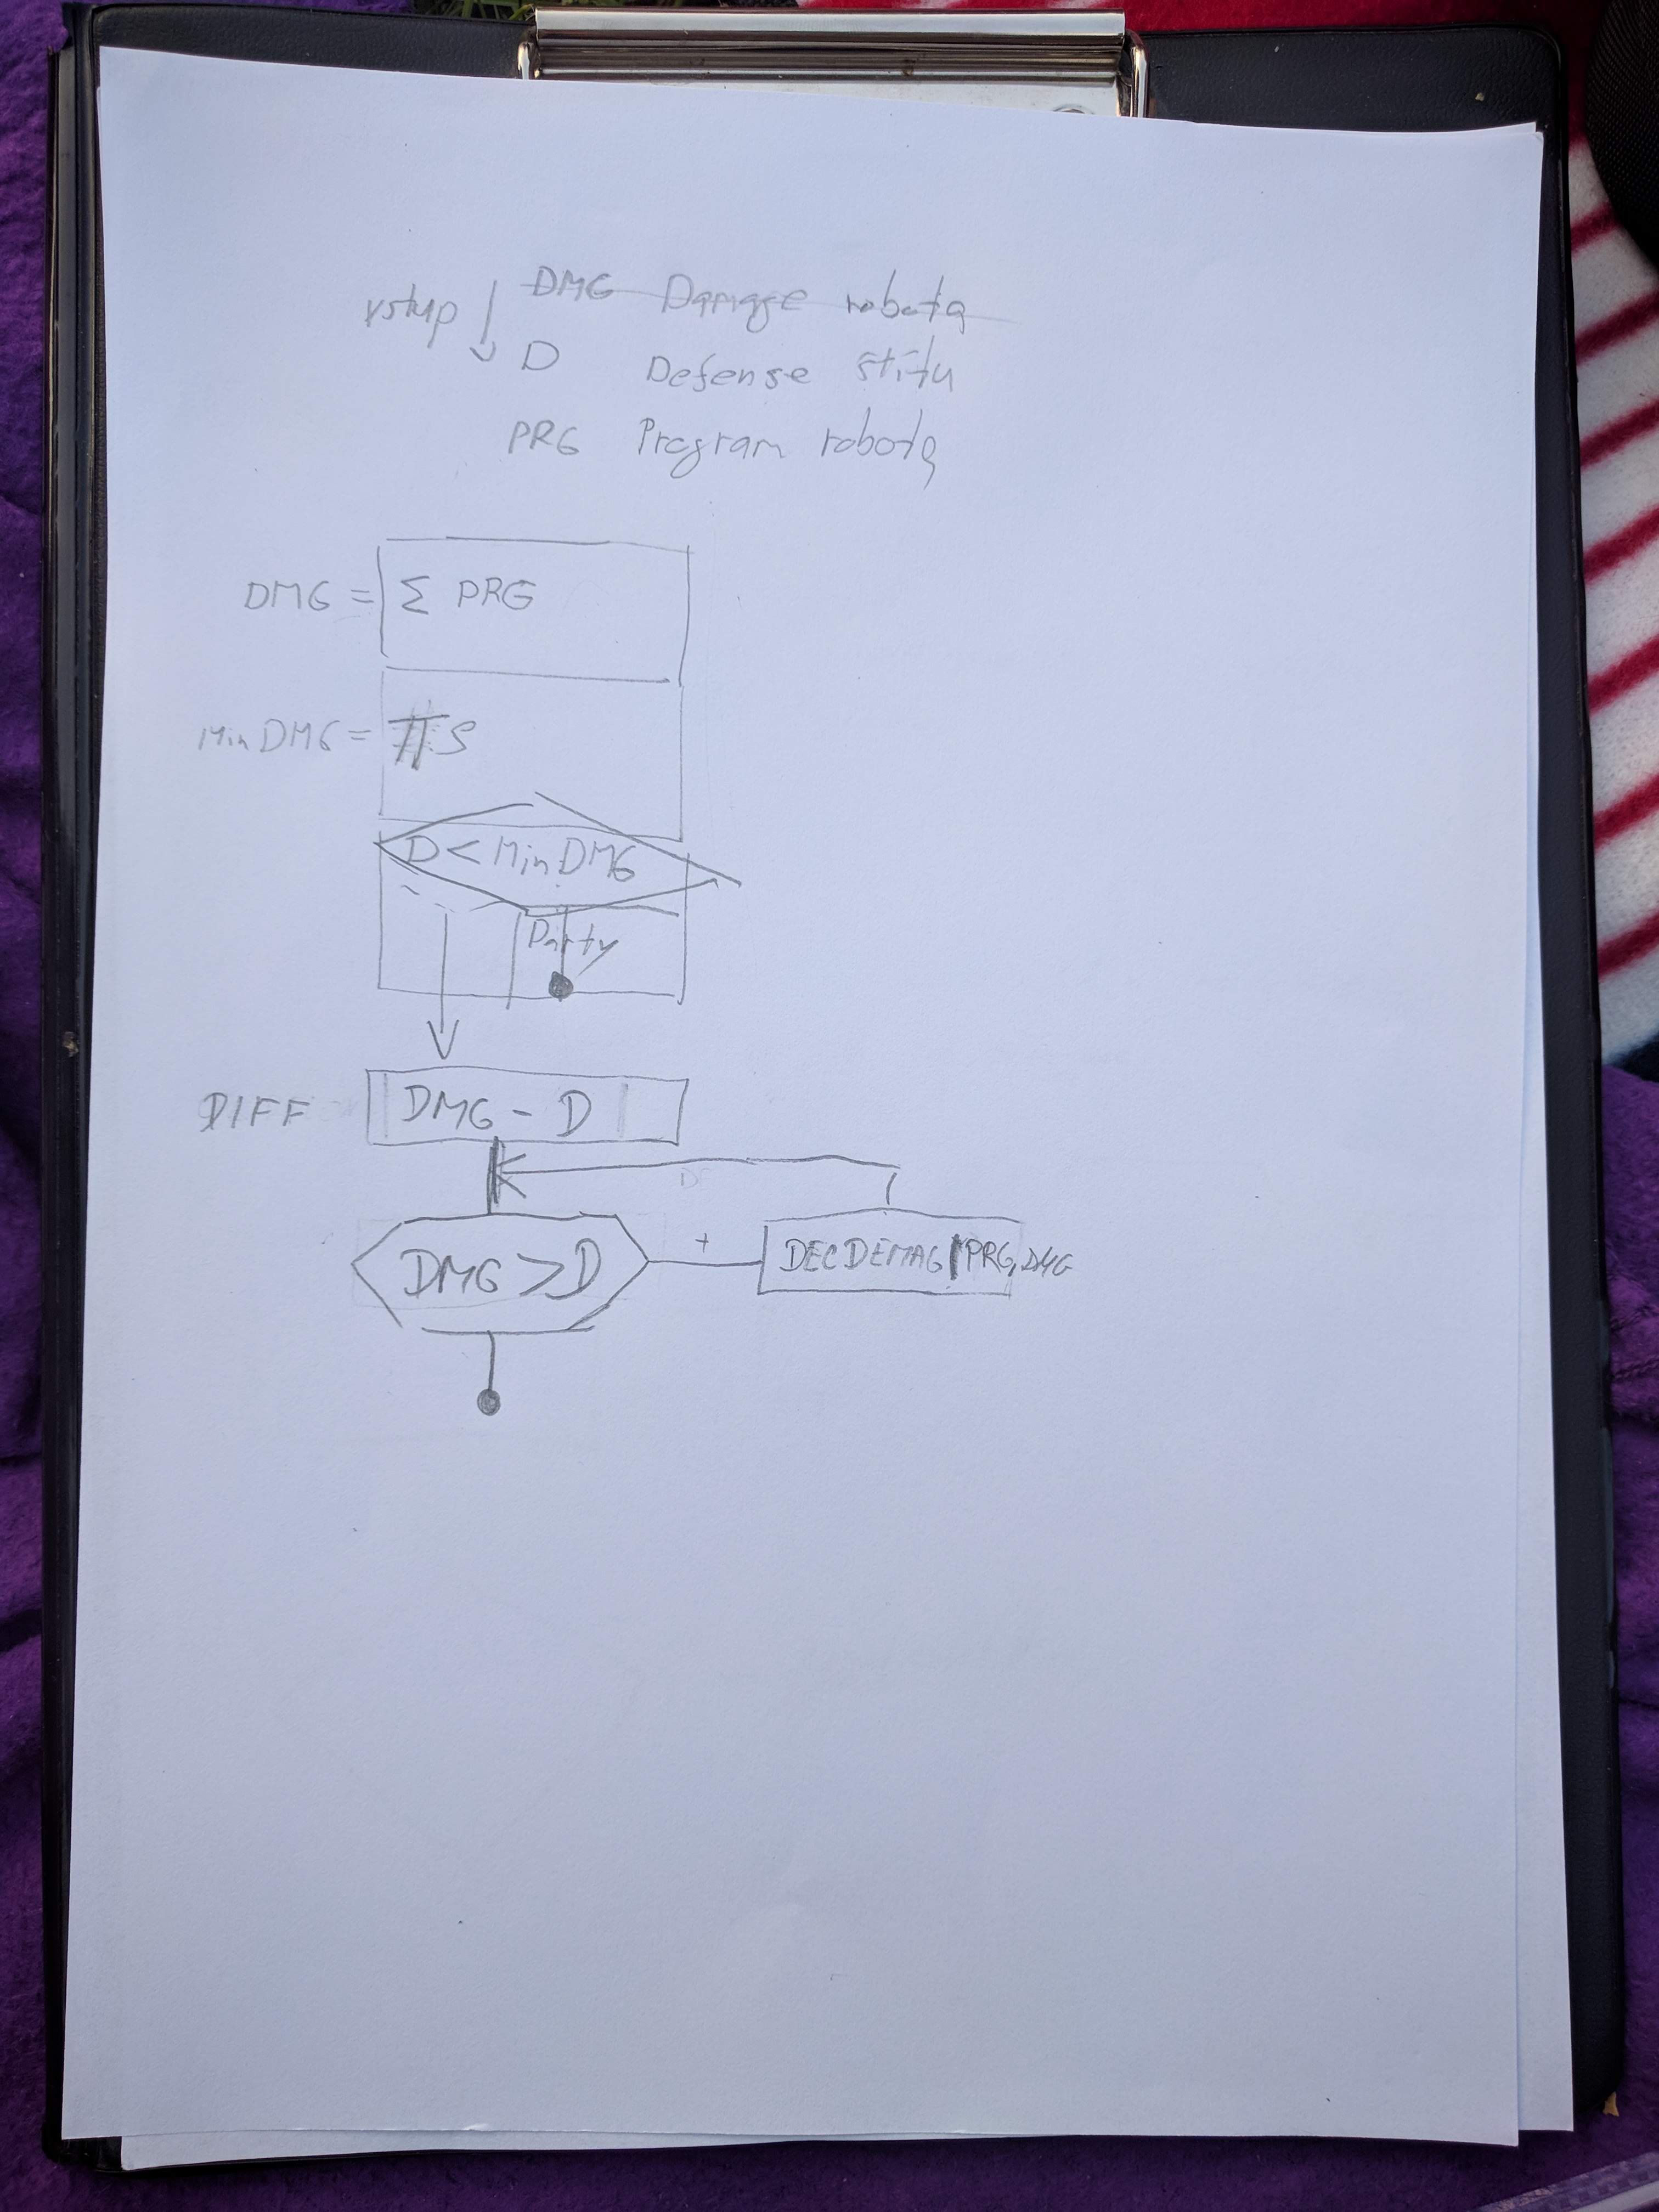 vstup ↓ DMG Damage robota
D Defense štítu
PRG Program robota
DMG = Σ PRG
MinDMG = #S
D < MinDMG
-
Party
DIFF DMG - D
DMG > D + DECDEMAG PRG, DMG